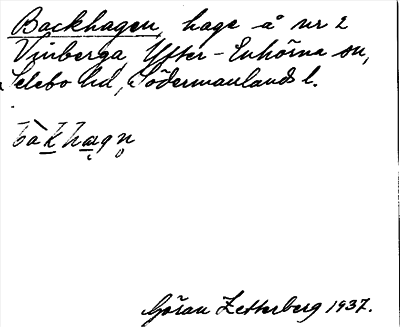 Backhagen, hage å nr 2
Vinberga, Ytter-Enhörna sn,
Selebo hd, Södermanlands l.
bàk hagn̥
Göran Zetterberg 1937.